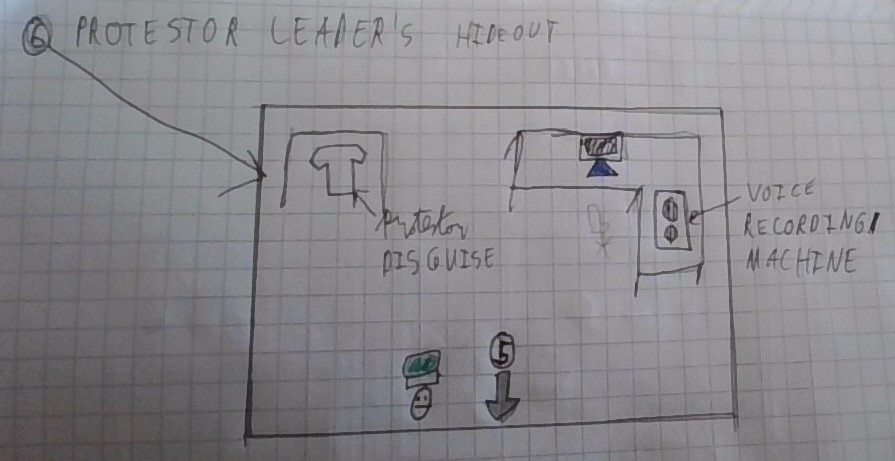 ⑥ PROTESTOR LEADER'S HIDEOUT
protestor
DISGUISE
VOICE
RECORDING
MACHINE
⑤